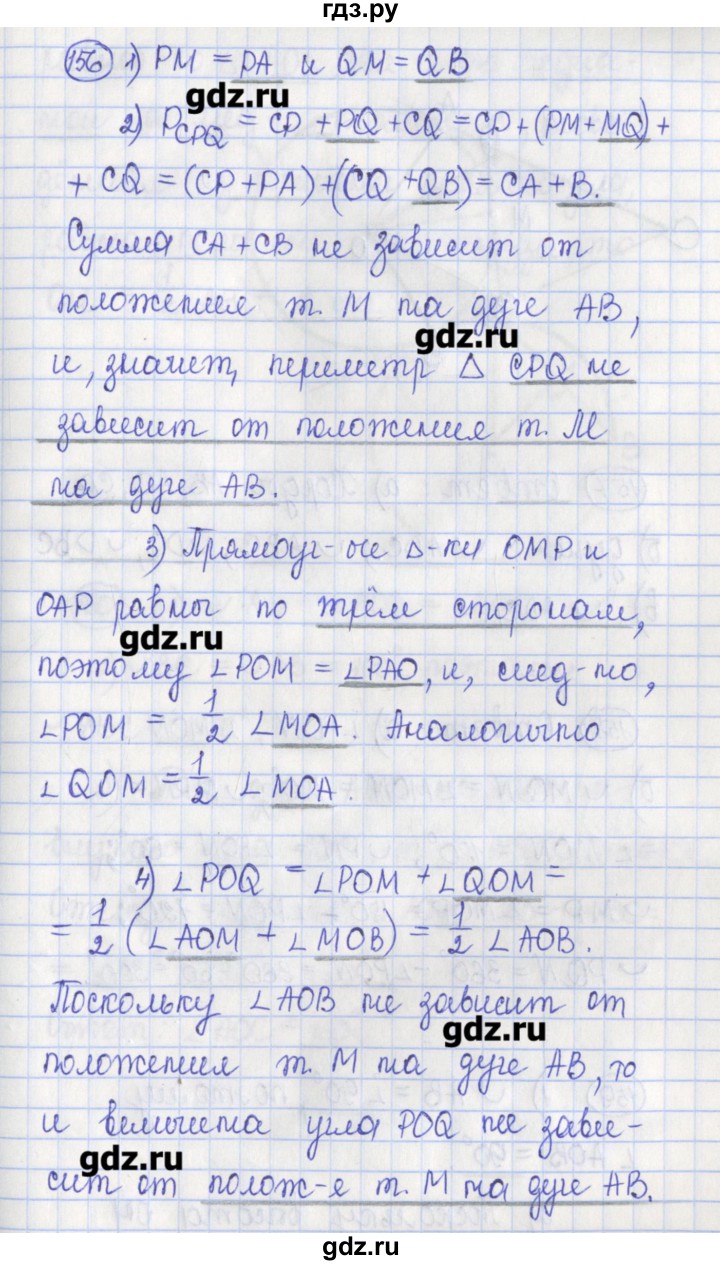 гдз.ру
156 1) PM = PA и QM = QB
gdz.ru
2) P_CPQ = CP + PQ + CQ = CP + (PM + MQ) +
+ CQ = (CP + PA) + (CQ + QB) = CA + B.
Сумма CA + CB не зависит от
положения т. M на дуге AB,
gdz.ru
и, значит, периметр △ CPQ не
зависит от положения т. M
на дуге AB.
3) Прямоуг-ые △-ки OMP и
OAP равны по трём сторонам,
gdz.ru
поэтому ∠POM = ∠PAO, и, след-но,
∠POM = 1/2 ∠MOA. Аналогично
∠QOM = 1/2 ∠MOA.
4) ∠POQ = ∠POM + ∠QOM =
= 1/2 (∠AOM + ∠MOB) = 1/2 ∠AOB.
Поскольку ∠AOB не зависит от
gdz.ru
положения т. M на дуге AB, то
и величина угла POQ не зави-
gdz.ru
сит от полож-я т. M на дуге AB.
gdz.ru